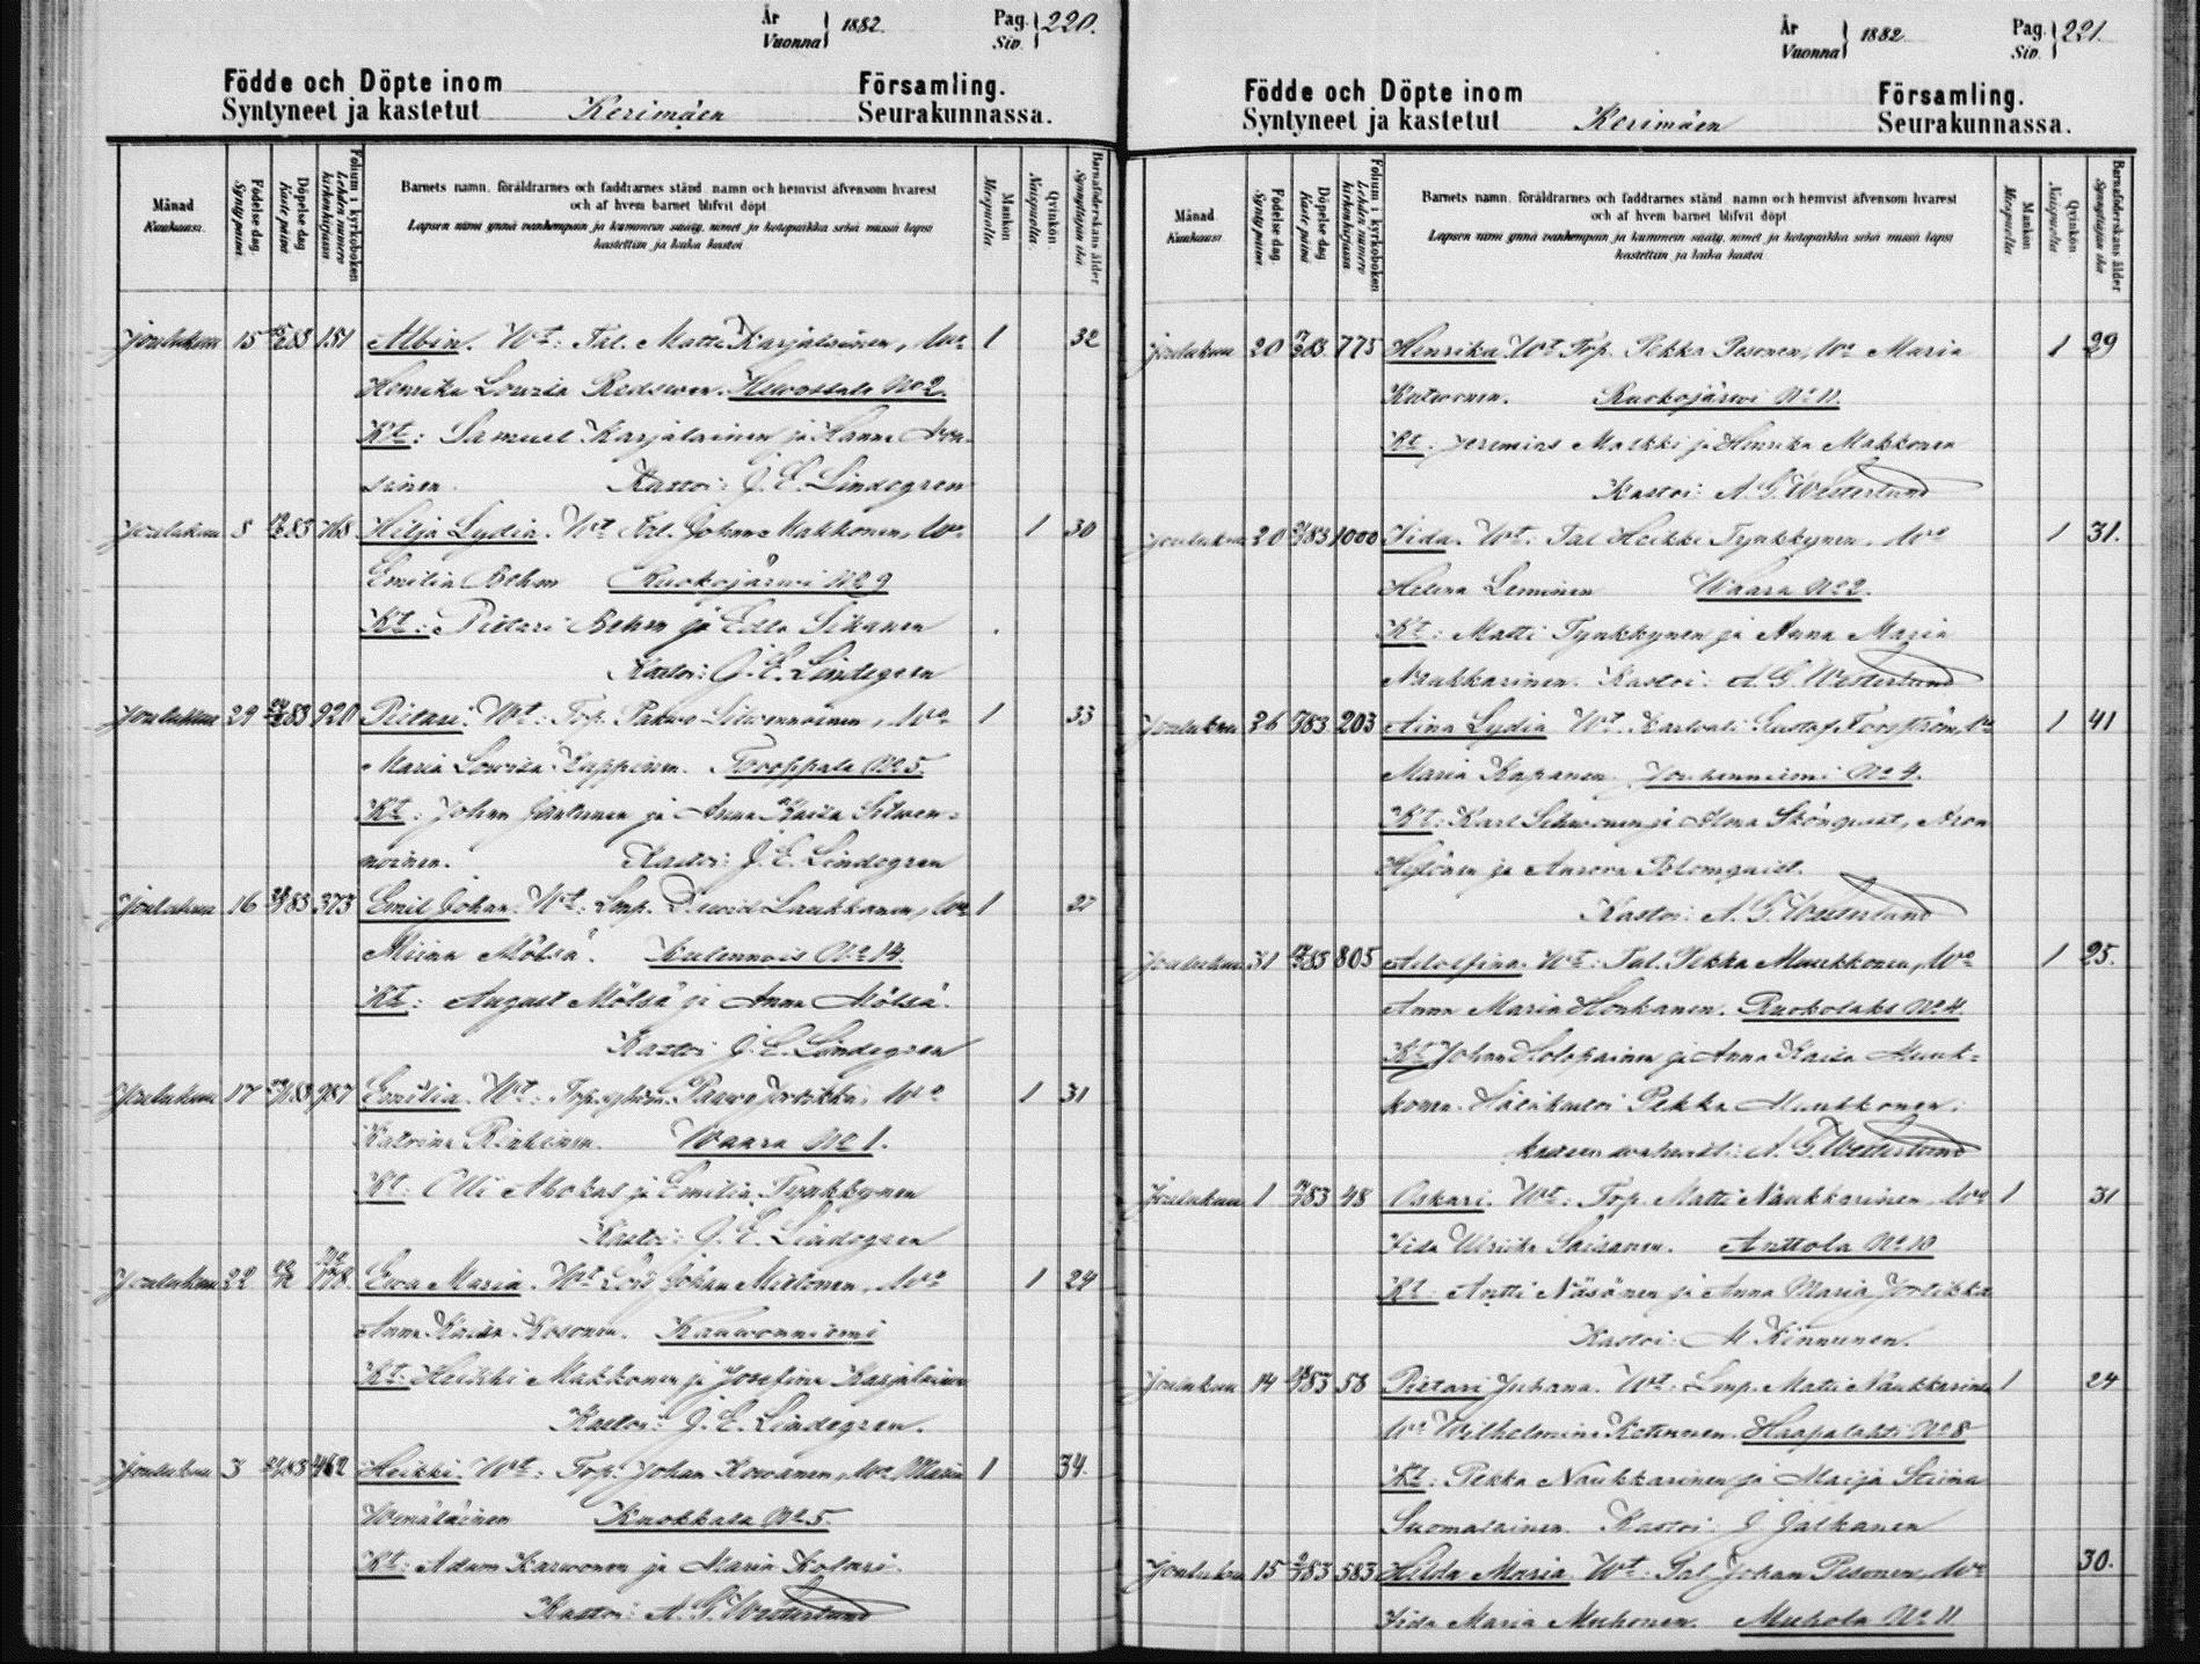 År
Vuonna } 1882. Pag. Siv. } 220.
Födde och Döpte inom Församling.
Syntyneet ja kastetut Kerimäen Seurakunnassa.
Månad Kuukausi.
Födelse dag. Synty päivä
Döpelse dag Kaste päivä
Folium i kyrkoboken Lehden numero kirkon kirjassa
Barnets namn, föräldrarnes och faddrarnes stånd, namn och hemvist äfvensom hvarest
och af hvem barnet blifvit döpt
Lapsen nimi ynnä vanhempain ja kummein sääty, nimet ja kotopaikka sekä missä lapsi
kastettiin ja kuka kastoi
Mankön Miespuolia.
Qvinkön Naispuolia.
Barnaföderskans ålder Synnyttäjän ikä
Joulukuu 15 83 151 Albin. Wt: Tal. Matti Karjalainen, Wo 1 32
Henrika Lowisa Redswen. No 2.
Kt: Samuel Karjalainen ja Hanna
sinen. Kastoi: J. E. Lindegren
Joulukuu 8 83 768 Hilja Lydia. Wt Johan Makkonen, Wo 1 30
Emilia Behm Ruokojärwi No 9
Kt: Pietari Behm ja Edla Sikanen
Kastoi: J. E. Lindegren
Joulukuu 29 83 920 Pietari. Wt: Top. Paawo Silwennoinen, Wo 1 33
Maria Lowisa Lappinen. Tooppala No 5.
Kt: Johan Jantunen ja Anna Kaisa Silwen-
noinen. Kastoi: J. E. Lindegren
Joulukuu 16 83 373 Emil Johan. Wt: Lmp. Dawid Laukkanen, Wo 1 27
Miina Mölsä. Kulennois No 14.
Kt: August Mölsä ja Anna Mölsä.
Kastoi J. E. Lindegren
Joulukuu 17 83 987 Emilia. Wt: Paawo Jortikka, Wo 1 31
Katrina Rinkinen. Waara No 1.
Kt: Olli Ahokas ja Emilia Tynkkynen
Kastoi: J. E. Lindegren
Joulukuu 22 778. Ewa Maria. Wt Lois Johan Miettonen, Wo 1 24
Anna Kaisa Kosonen. Kauwonniemi
Kt: Heikki Makkonen ja Josefina Karjalainen
Kastoi: J. E. Lindegren.
Joulukuu 3 83 462 Heikki. Wt: Top. Johan Kowanen, Wo Maria 1 34.
Wenäläinen Kuokkala No 5.
Kt: Adam Karwonen ja Maria Kolari.
Kastoi: A. G. Westerlund
År
Vuonna } 1882 Pag. Siv. } 221.
Födde och Döpte inom Församling.
Syntyneet ja kastetut Kerimäen Seurakunnassa.
Månad Kuukausi
Födelse dag. Synty päivä
Döpelse dag Kaste päivä
Folium i kyrkoboken Lehden numero kirkon kirjassa
Barnets namn, föräldrarnes och faddrarnes stånd, namn och hemvist äfvensom hvarest
och af hvem barnet blifvit döpt.
Lapsen nimi ynnä vanhempain ja kummein sääty, nimet ja kotopaikka sekä missä lapsi
kastettiin ja kuka kastoi
Mankön Miespuolia
Qvinkön Naispuolia
Barnaföderskans ålder Synnyttäjän ikä
Joulukuu 20 83 775 Henrika. Wt Top. Pekka Pesonen, Wo Maria 1 29
Kutwonen. Ruokojärwi No 11.
Kt. Jeremias Malkki ja Henrika Makkonen
Kastoi: A. G. Westerlund
Joulukuu 20 83 1000 Iida. Wt: Tal Heikki Tynkkynen. Wo 1 31.
Helena Leminen Waara No 2.
Kt: Matti Tynkkynen ja Anna Maria
Naukkarinen. Kastoi: A. G. Westerlund
Joulukuu 26 83 203 Aina Lydia Wt. Karwali Gustaf Forsström, Wo 1 41
Maria Kapanen. Jouhenniemi No 4.
Kt: Karl Sihwonen ja Alma Skönqvist, Aron
Hytönen ja Aurora Blomqvist.
Kastoi: A. G. Westerlund
Joulukuu 31 83 805 Adolfina. Wt: Tal. Pekka Muukkonen, Wo 1 25.
Anna Maria Honkanen. Ruokolaks No 4
Kt Johan Holopainen ja Anna Kaisa Muuk-
konen. Hätäkastoi Pekka Muukkonen.
kasteen wahwisti: A. G. Westerlund
Joulukuu 1 83 48 Oskari. Wt: Top. Matti Naukkarinen, Wo 1 31
Iida Ulriika Saisanen. Anttola No 10
Kt. Antti Näsänen ja Anna Maria Jortikka
Kastoi: M Kinnunen.
Joulukuu 14 83 58 Pietari Juhana. Wt: Lmp. Matti Naukkarinen 1 24
Wo Wilhelmina Kettunen. Haapalahti No 8
Kt: Pekka Naukkarinen ja Maija Stiina
Suomalainen. Kastoi: J Jalkanen
Joulukuu 15 83 583 Hilda Maria. Wt: Tal Johan Pesonen, Wo 30.
Iida Maria Muhonen. Muhola No 11